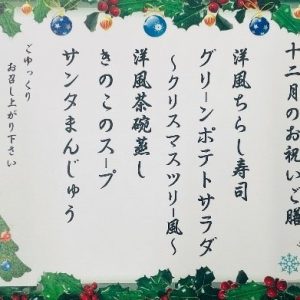 十二月のお祝いご膳
洋風ちらし寿司
グリーンポテトサラダ
～クリスマスツリー風～
洋風茶碗蒸し
きのこのスープ
サンタまんじゅう
ごゆっくり
お召し上がり下さい